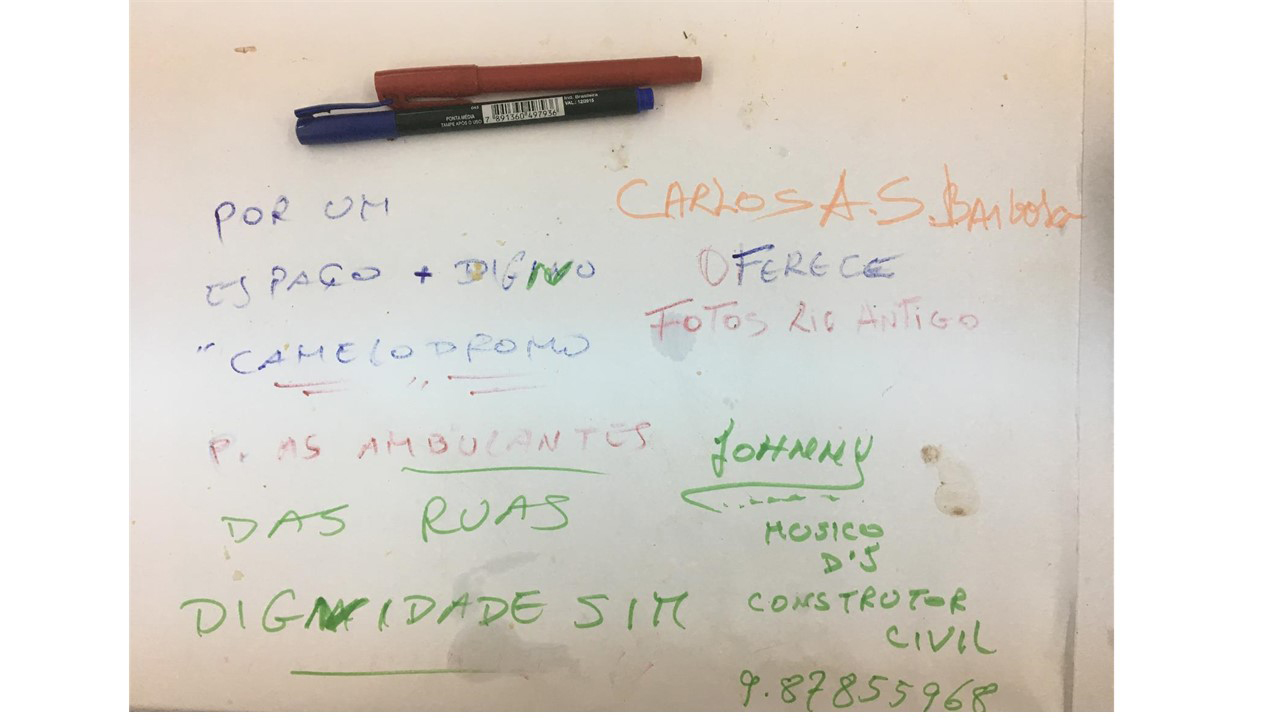 Ind. Brasileira
VAL.: 12/2018
PONTA MÉDIA
TAMPE APÓS O USO
7 891360 497936
POR UM
ESPAÇO + DIGNO
"CAMELODROMO"
P. AS AMBULANTES
DAS RUAS
DIGNIDADE SIM
CARLOS A. S. Barbosa
OFERECE
FOTOS RIO ANTIGO
JOHNNY
MUSICO
D'S
CONSTRUTOR
CIVIL
9.87855968